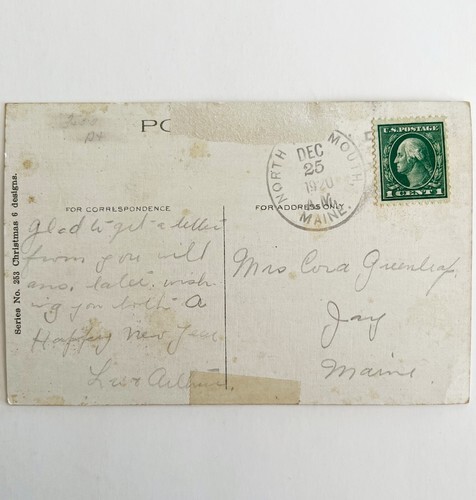 PO
NORTH MOUTH,
DEC
25
1920
A.M.
MAINE.
U.S. POSTAGE
1 CENT 1
FOR CORRESPONDENCE
FOR ADDRESS ONLY
Series No. 253 Christmas 6 designs.
Glad to get a letter
from you will
ans. later. wish-
ing you both A
Happy New Year
Mrs Cora Greenleaf
Jay
Maine.